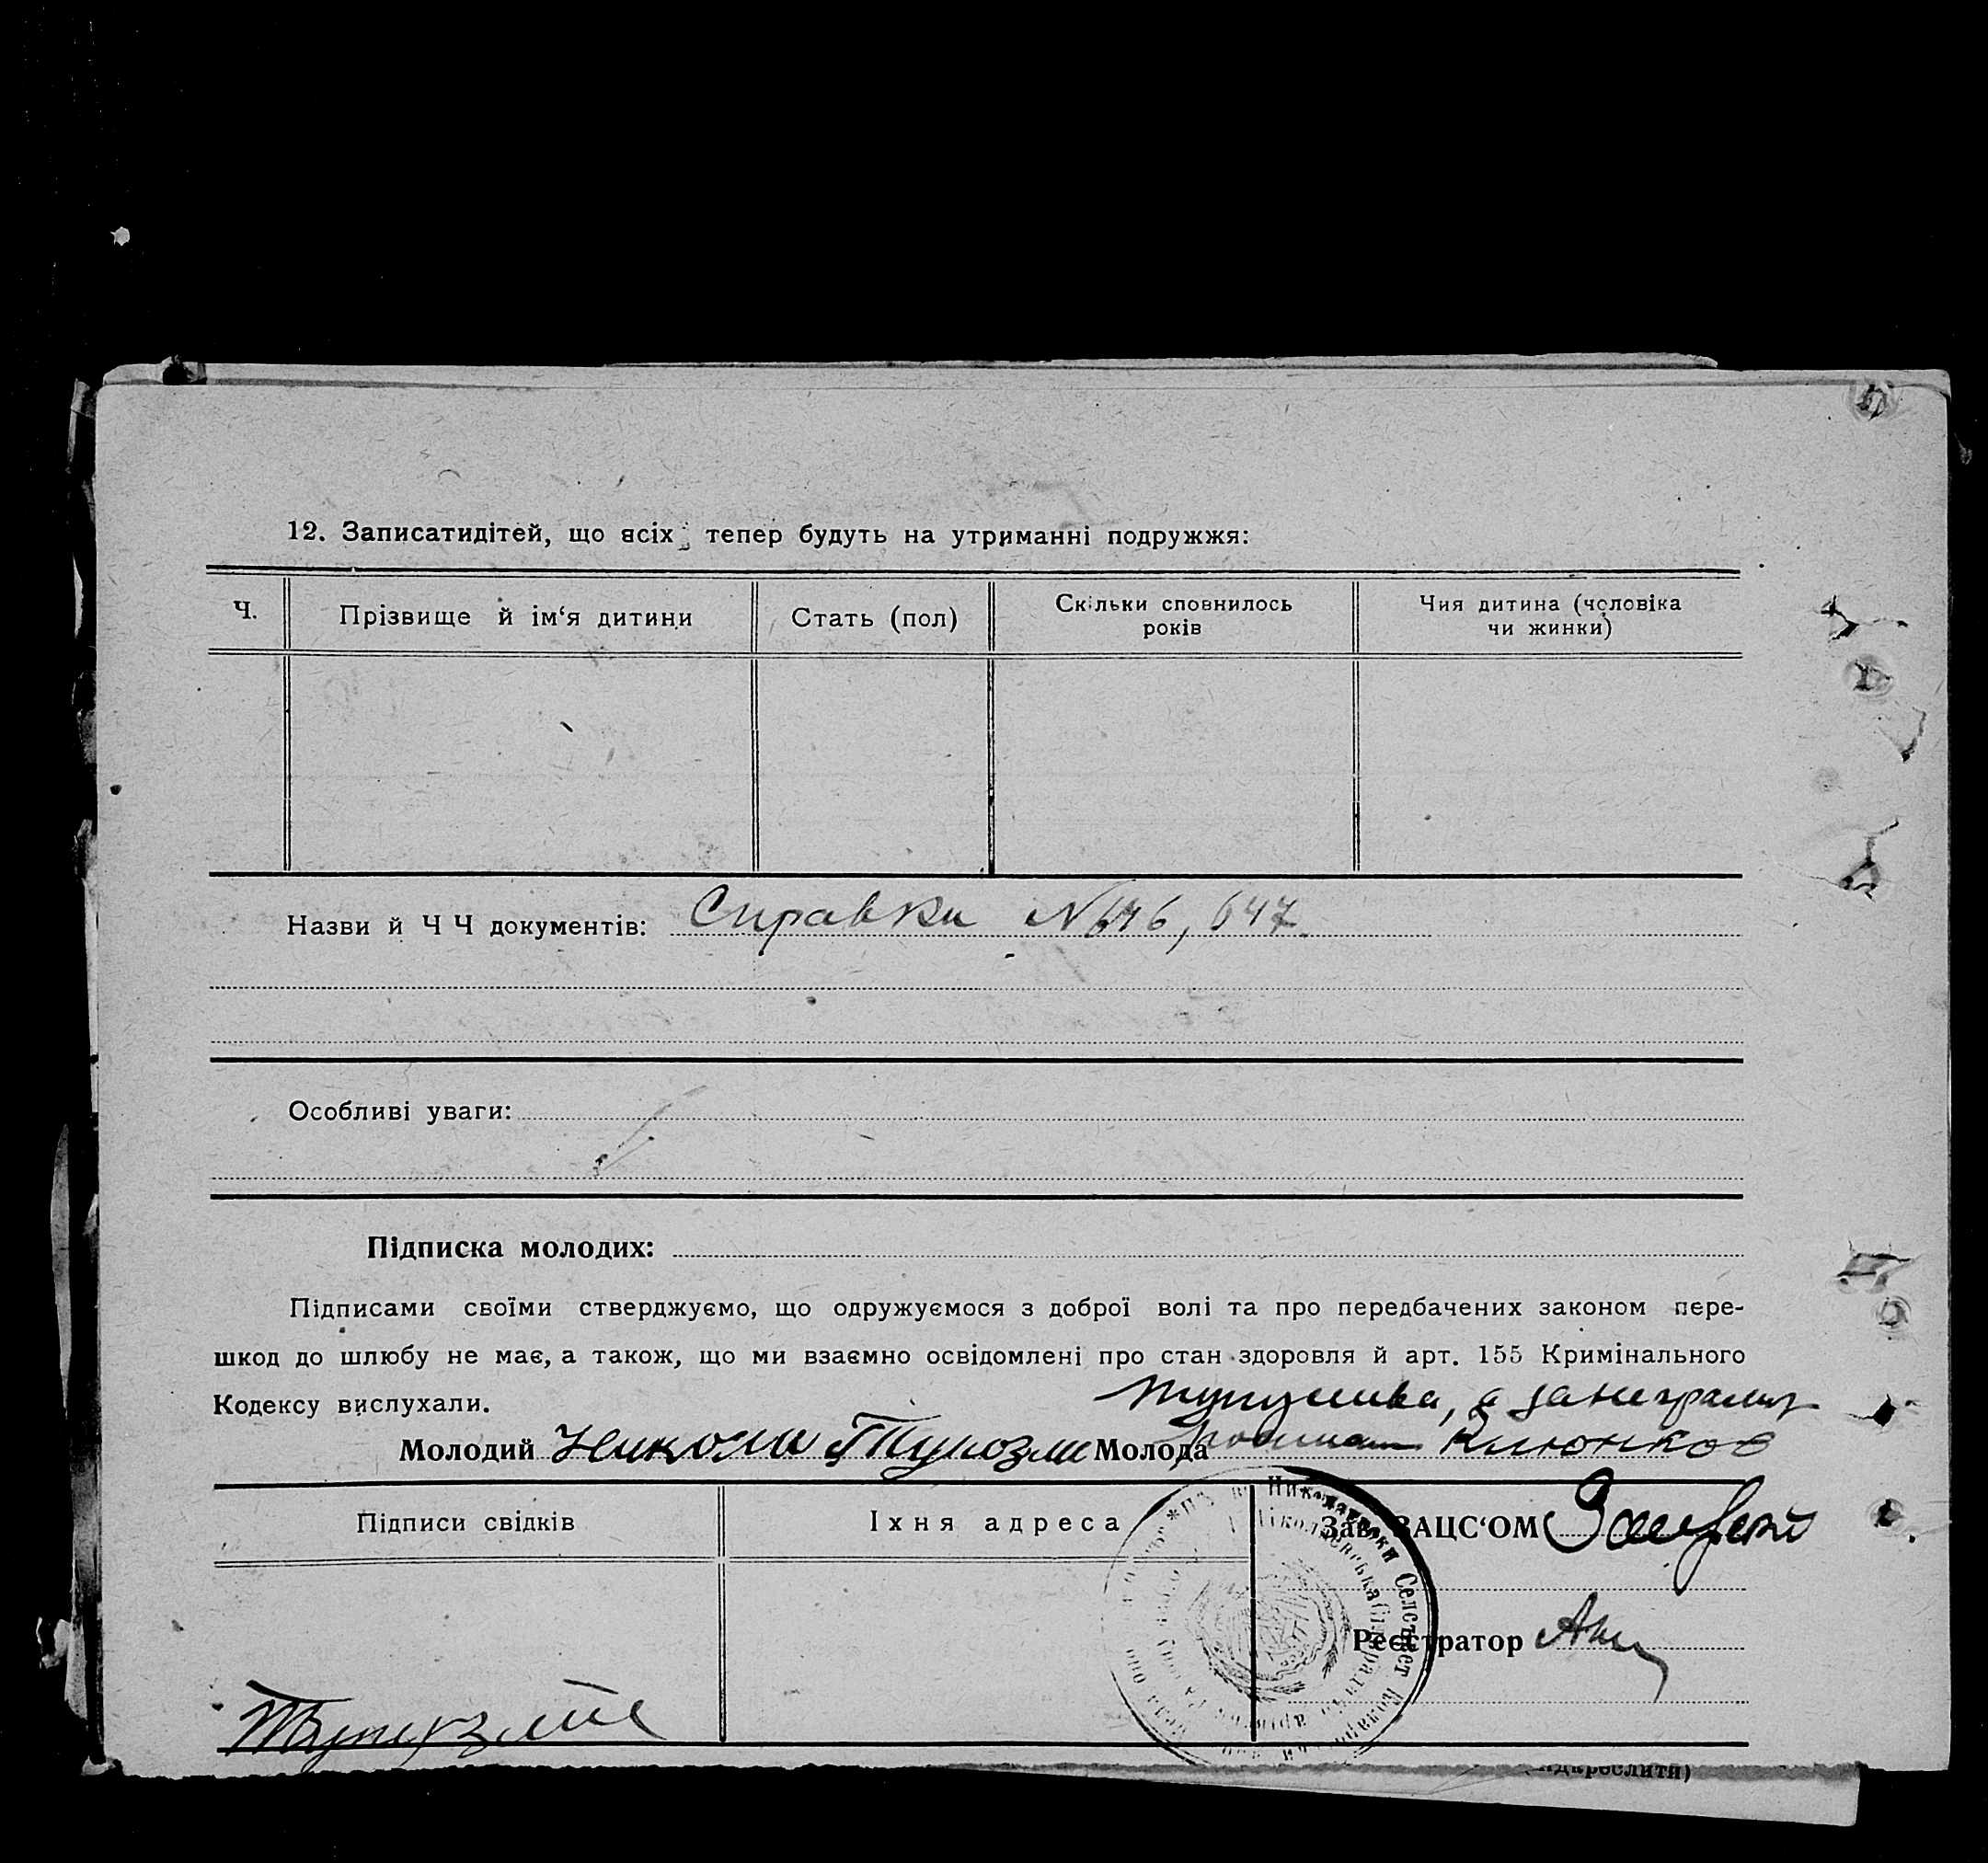 12. Записатидітей, що всіх тепер будуть на утриманні подружжя:
Ч.
Прізвище й ім‘я дитини
Стать (пол)
Скільки сповнилось
років
Чия дитина (чоловіка
чи жинки)
Назви й Ч Ч документів: Справки №646, 647.
Особливі уваги:
Підписка молодих:
Підписами своїми стверджуємо, що одружуємося з доброї волі та про передбачених законом пере-
шкод до шлюбу не має, а також, що ми взаємно освідомлені про стан здоровля й арт. 155 Кримінального
Кодексу вислухали.
а за неграмот
Молодий Николи Молода Клюнков
Підписи свідків
Їхня адреса
Зав. ЗАЦС‘ОМ
Реєстратор
Сельсовет
підкреслити)